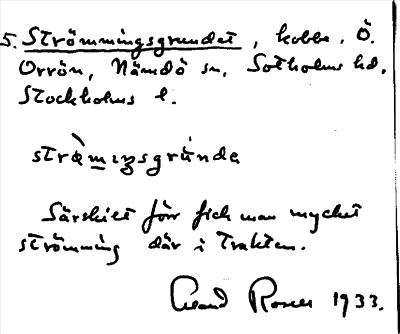 5. Strömmingsgrundet, kobbe, Ö.
Orrön, Nämdö sn, Sotholms hd,
Stockholms l.
strömıŋsgrúnde
Särskilt förr fick man mycket
strömming där i trakten.
1933.